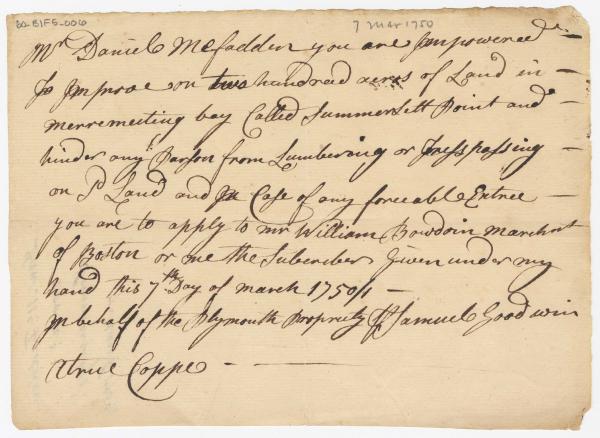 20-B1F5-006
7 Mar 1750
Mr Daniel Mcfadden you are Impowered
To Improve on two hundrad acrs of Land in
merremeiting bay Called Summersett Point and
hinder any Parson from Lumbering or Tresspassing
on Sd Land and In Case of any forceable Entree
you are to apply to mr William Bowdoin Marchnt
of Boston or me the Subscriber Given under my
hand this 7th Day of march 1750/1
In behalf of the Plymouth Propriety Pr Samuel Goodwin
A true Coppe